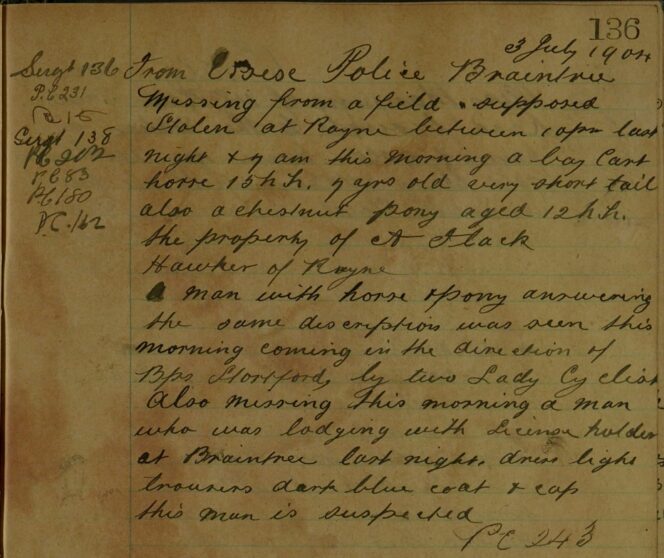 136
3 July 1904
Sergt 136 From Police Braintree
P.C 231
Missing from a field supposed
15
Stolen at Rayne between 10pm last
Sergt 138
night & 7 am this morning a bay Cart
PC 202
horse 15 h.h. 7 yrs old very short tail
PC 83
also a chestnut pony aged 12 h.h.
PC 180
the property of A Flack
PC. 162
Hawker of Rayne
A man with horse & pony answering
the same description was seen this
morning coming in the direction of
Bps Stortford, by two Lady Cyclist
Also missing this morning a man
who was lodging with License holder
at Braintree last night. dress light
trousers dark blue coat & cap
this man is suspected
PC 243